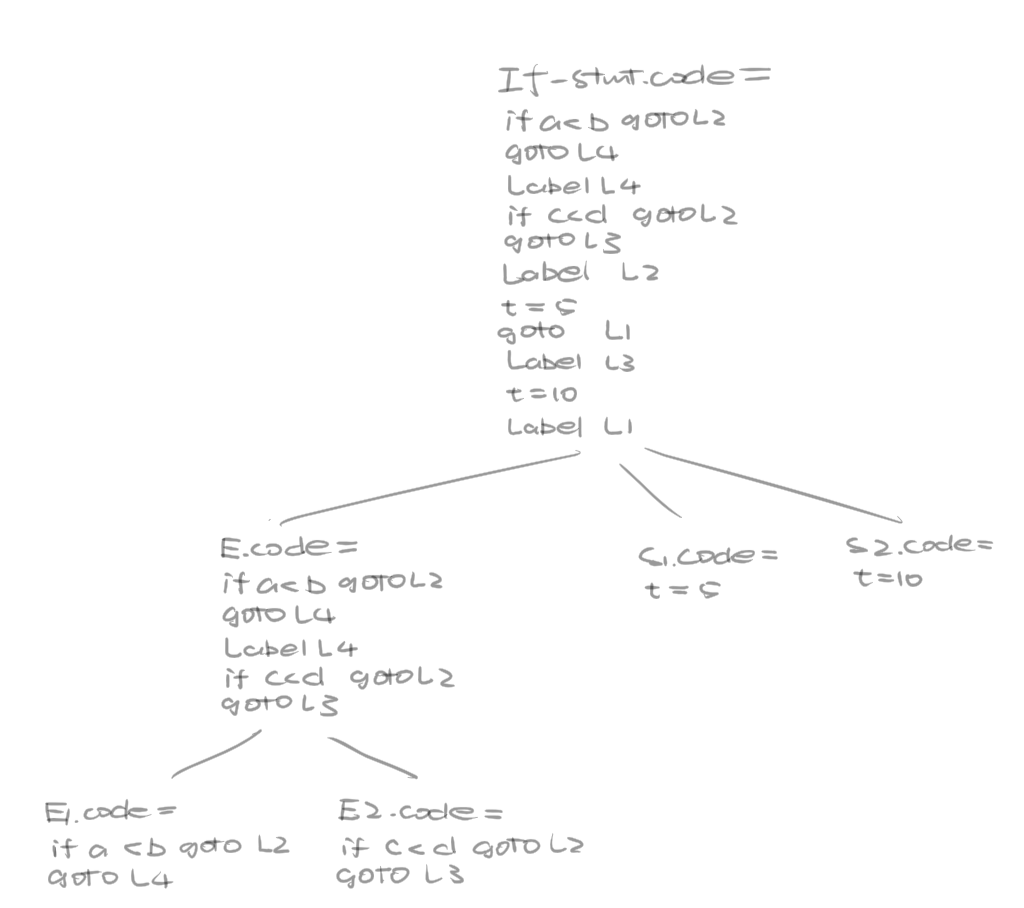 If-stmt.code=
if a<b goto L2
goto L4
Label L4
if c<d goto L2
goto L3
Label L2
t=5
goto L1
Label L3
t=10
Label L1
E.code=
if a<b goto L2
goto L4
Label L4
if c<d goto L2
goto L3
S1.code=
t=5
S2.code=
t=10
E1.code=
if a<b goto L2
goto L4
E2.code=
if c<d goto L2
goto L3